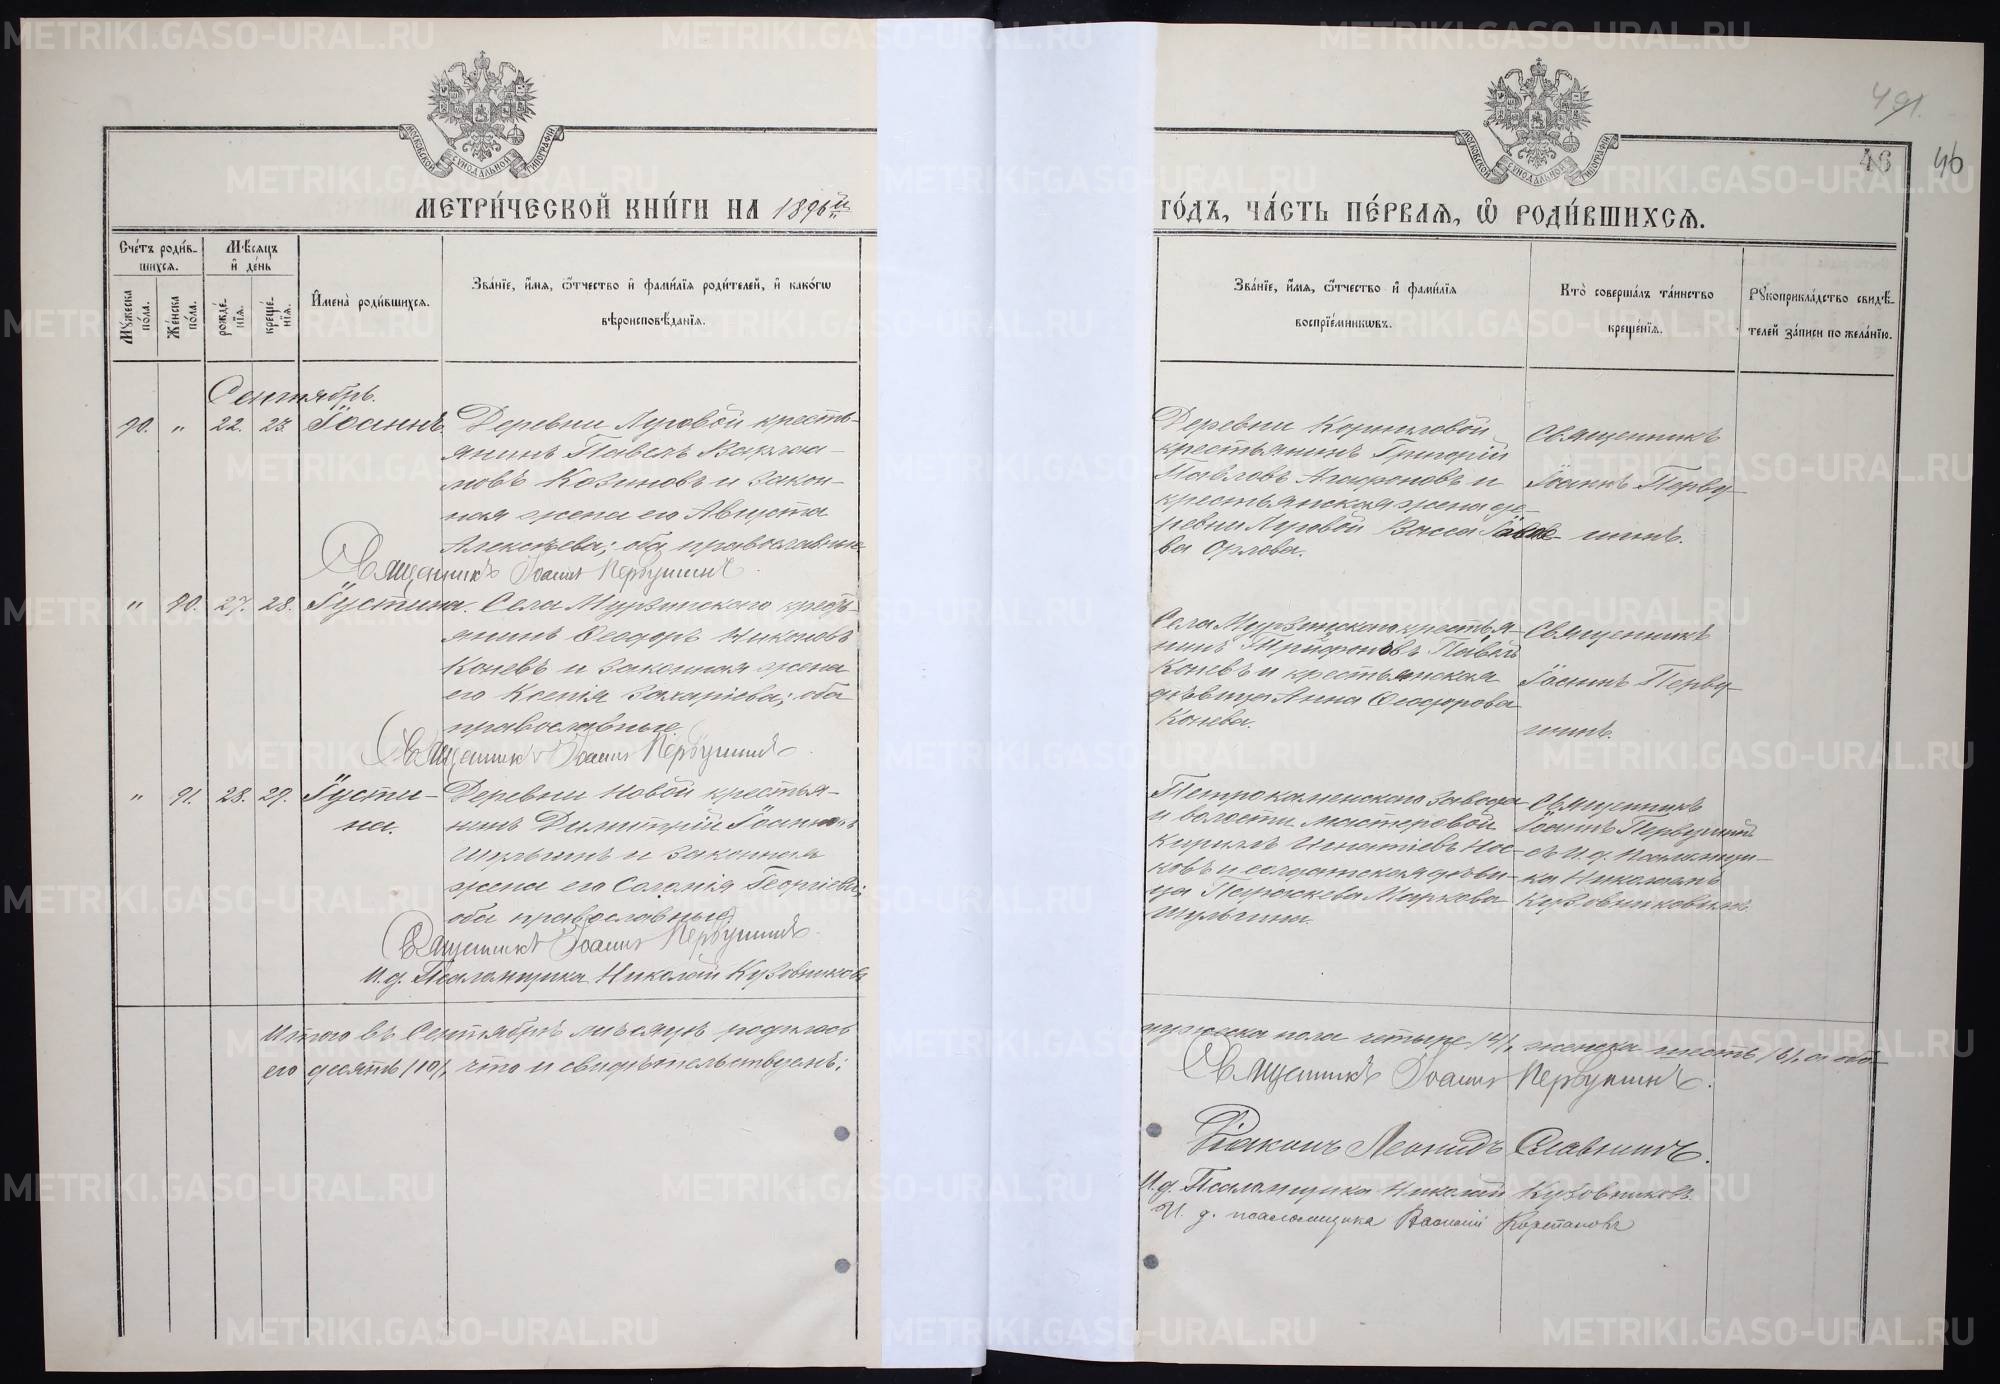 491.
46 46
МОСКОВСКОЙ СѴНОДАЛЬНОЙ ТИПОГРАФІИ
МОСКОВСКОЙ СѴНОДАЛЬНОЙ ТИПОГРАФІИ
МЕТРИ́ЧЕСКОЙ КНИ́ГИ НА 1896й
ГО́ДЪ, ЧА́СТЬ ПЕ́РВАЯ, Ѽ РОДИ́ВШИХСЯ.
Сче́тъ роди́в-
шихся.
Мꙋжеска по́ла.
Же́нска по́ла.
Мѣ́сяцъ
и҆ де́нь
рожде́-
нїя.
креще́-
нїя.
И҆мена̀ роди́вшихся.
Зва́нїе, и҆́мя, ѻ҆́тчество и҆ фами́лїя роди́телей, и҆ како́гѡ
вѣроисповѣ́данїя.
Зва́нїе, и҆́мя, ѻ҆́тчество и҆ фами́лїя
воспрїе́мниковъ.
Кто̀ соверша́лъ та́инство
креще́нїя.
Рꙋкоприкла́дство свидѣ́-
телей за́писи по жела́нїю.
Сентябрь.
90. " 22. 23. Іоаннъ.
Деревни Луговой кресть-
янинъ Павелъ Варлаа-
мовъ Козиновъ и закон-
ная жена его Августа
Алексѣева; оба православные
Священникъ Іоаннъ Первушинъ.
Деревни Корниловой
крестьянинъ Григорій
Павловъ Агафоновъ и
крестьянская жена де-
ревни Луговой Васса
ва Орлова.
Священникъ
Іоаннъ Перву-
шинъ.
" 90. 27. 28. Іустина.
Села Мурзинскаго кресть-
янинъ Ѳеодоръ Никоновъ
Коневъ и законная жена
его Ксенія Захаріева; оба
православные.
Священникъ Іоаннъ Первушинъ
Села Мурзинскаго крестья-
нинъ Трифоновъ Павелъ
Коневъ и крестьянская
дѣвица Анна Ѳеодорова
Конева.
Священникъ
Іоаннъ Перву-
шинъ.
" 91. 28. 29. Іусти-
на.
Деревни Новой крестья-
нинъ Димитрій Іоанновъ
Шульгинъ и законная
жена его Соломія Георгіева;
оба православные.
Священникъ Іоаннъ Первушинъ.
И. д. Псаломщика Николай Кузовниковъ
Петрокаменскаго завода
и волости мастеровой
Кирилъ Игнатіевъ Нос-
ковъ и солдатская дѣви-
ца Параскева Маркова
Шульгина.
Священникъ
Іоаннъ Первушинъ
съ И. д. Псаломщи-
ка Николаемъ
Кузовниковымъ.
Итого въ Сентябрѣ мѣсяцѣ родилось
мужеска пола четыре /4/, женска шесть /6/, а обо-
его десять /10/, что и свидѣтельствуемъ:
Священникъ Іоаннъ Первушинъ.
Діаконъ Леонидъ Славнинъ.
И. д. Псаломщика Николай Кузовниковъ.
И. д. псаломщика Василій Корепановъ
METRIKI.GASO-URAL.RU